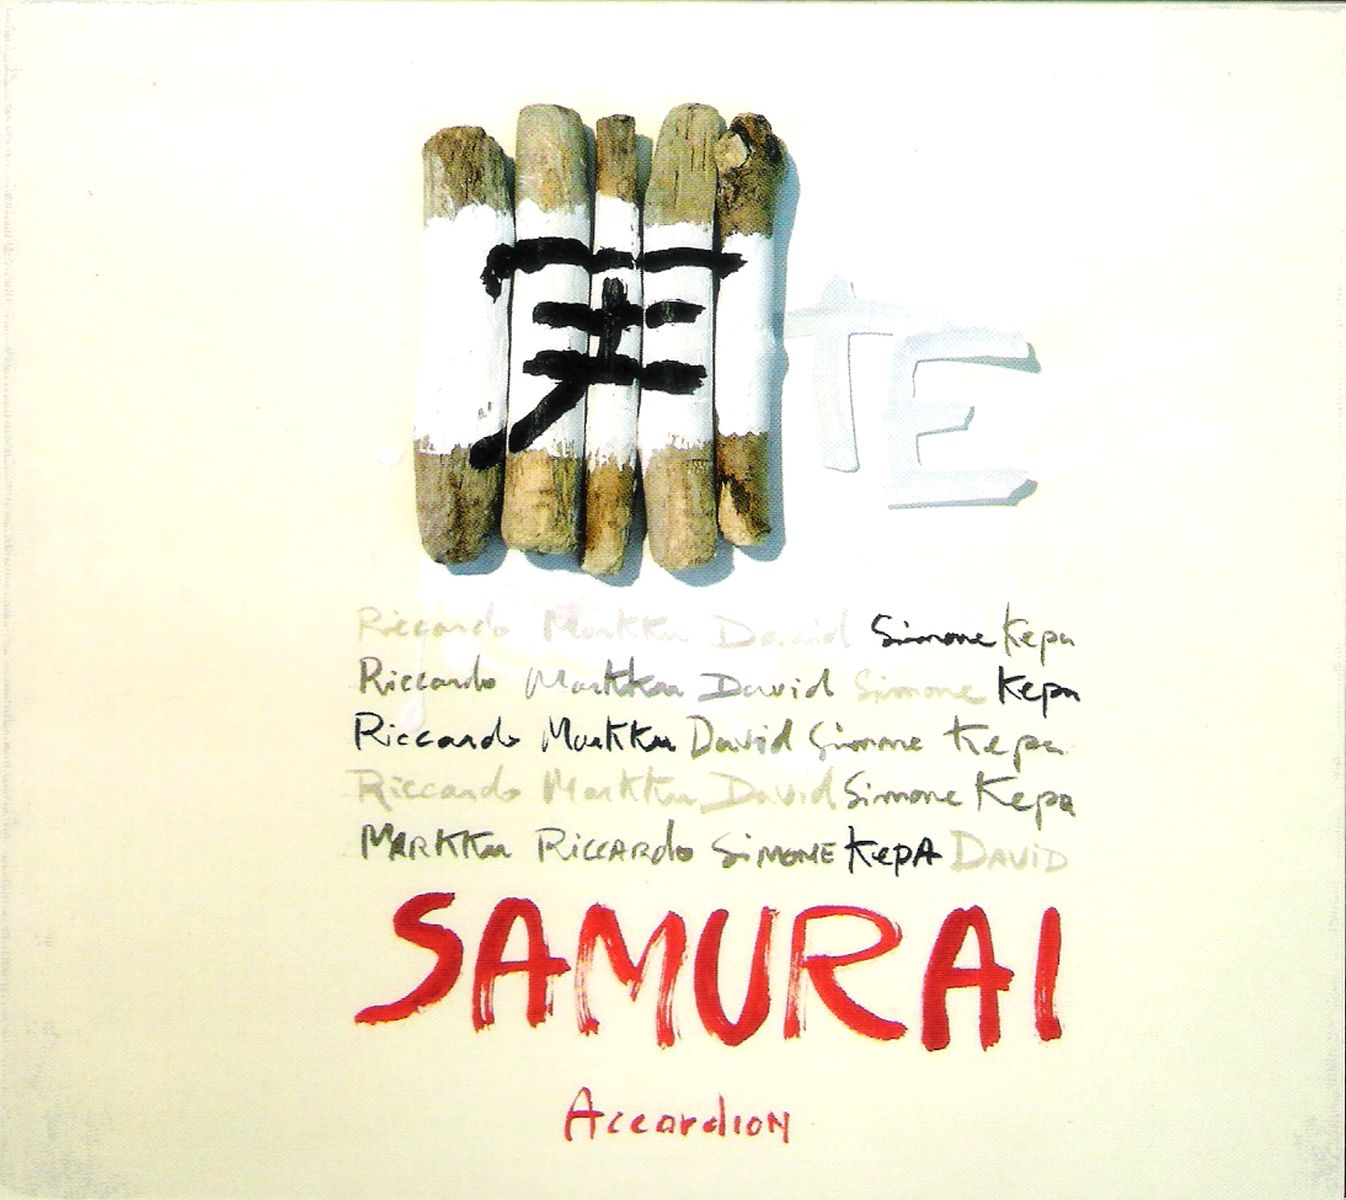 TE
Riccardo Markku David Simone Kepa
Riccardo Markku David Simone Kepa
Riccardo Markku David Simone Kepa
Riccardo Markku David Simone Kepa
MARKKu RICCARdo SiMONE KepA DAViD
SAMURAI
AccordioN